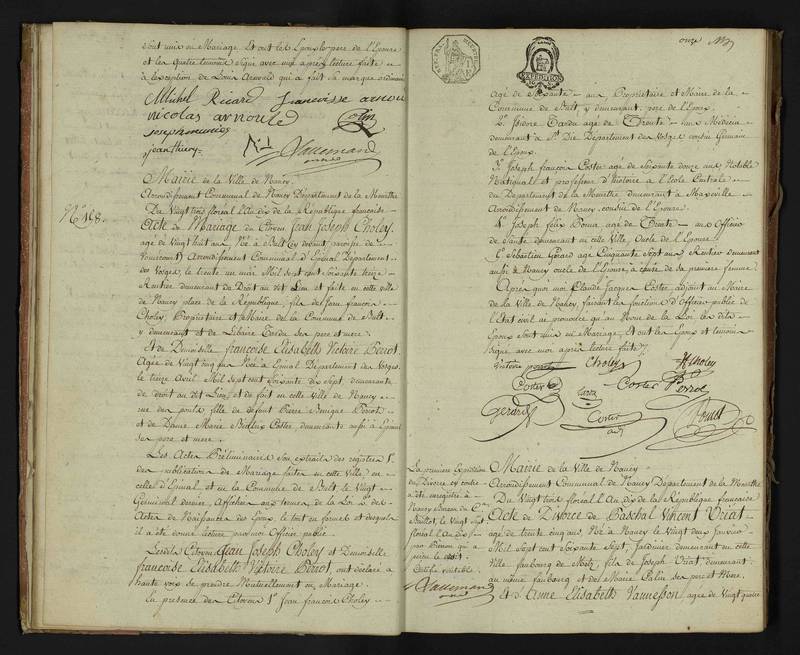 sont unis en Mariage. Et ont les Epoux les pere de l'Epouse
et les quatre temoins signé avec moi après lecture faite
à l'exception de Louis Arnould qui a fait sa marque ordinaire
Michel Ricard françoisse arnou
nicolas arnould
jeanthiery
Vallemand
Mairie de la Ville de Nancy.
Arrondissement Communal de Nancy Département de la Meurthe
Du Vingt trois floréal l'An dix de la République française
N° 168.
Acte de Mariage du Citoyen Jean Joseph Choley,
age de Vingt huit ans, Né à Bult cy devant paroisse de
Arrondissement Communal d'Epinal Département
des Vosges, le trente un mai Mil sept cent soixante treize
Rentier demeurant de Droit au dit Lieu et faite en cette ville
de Nancy place de la République, fils de Jean francois
Choley, Propriétaire et Maire de la Commune de Bult
y demeurant et de Libaire Tardu ses pere et mere.
Et de Demoiselle françoise Elisabeth Victoire Perrot.
Agée de Vingt cinq ans Née à Epinal Département des Vosges.
le treize Avril Mil sept cent soixante dix sept demeurante
de droit au dit Lieu, et de fait en cette ville de Nancy
rue des ponts fille de défunt Pierre Perrot
et de Dame Marie Coster, demeurante aussi à Epinal
ses pere et mere.
Les Actes Préliminaires sont extraits des registres 1°
des publications de Mariage faites en cette Ville en
celle d'Epinal et en la Commune de Bult, le Vingt
Germinal dernier, Affichés aux termes de la Loi 2° des
Actes de Naissances des Epoux, le tout en forme et desquels
il a été donné lecture par moi Officier public.
Lesdits Citoyen Jean Joseph Choley et Demoiselle
françoise Elisabeth Victoire Perrot, ont déclaré à
haute voix se prendre Mutuellement en Mariage.
En presence des Citoyens 1° Jean françois Choley
onze
EXPEDITION
agé de soixante ans Propriétaire et Maire de la
Commune de Bult y demeurant. pere de l'Epoux
2° Isidore Tardu agé de Trente ans Médecin
demeurant à St Dié Département des Vosges cousin Germain
de l'Epoux
3° Joseph françois Coster agé de Soixante douze ans Notable
National et professeur d'histoire à l'Ecole Centrale
du Departement de la Meurthe demeurant à Maxeville
Arrondissement de Nancy cousin de l'Epouse.
4° Joseph félix agé de Trente ans Officier
de Santé demeurant en cette Ville, Oncle de l'Epouse
Et Sébastien Gérard agé Cinquante Sept ans Rentier demeurant
aussi à Nancy oncle de l'Epouse à cause de sa premiere femme.
Après quoi moi Claude Jacques Coster adjoint au Maire
de la Ville de Nancy, faisant les fonctions d'Officier public de
l'Etat civil ai prononcé qu'au Nom de la Loi les dits
Epoux sont unis en Mariage, Et ont les Epoux et temoins
Signé avec moi après lecture faite.
Victoire perrot Choley JfCholey
Coster Tardu Coster Perrot
Gerard Coster
adj
La premiere Expédition
du Divorce cy contre
a été enregistré à
Nancy Bureau du Cen
Baillot, le Vingt Sept
floréal l'An dix
par qui a
perçu le droit.
Certifié véritable.
Vallemand
Mairie de la Ville de Nancy
Arrondissement Communal de Nancy Département de la Meurthe
Du Vingt trois floréal l'An dix de la République française
Acte de Divorce de Paschal Vincent Vriat
agé de trente cinq ans, Né à Nancy le Vingt deux Janvier
Mil Sept cent Soixante Sept, Jardinier demeurant en cette
Ville faubourg de Metz, fils de Joseph Vriat, demeurant
au même faubourg et de Marie Palin ses pere et Mere.
Et d'Anne Elisabeth Vannesson agée de Vingt quatre